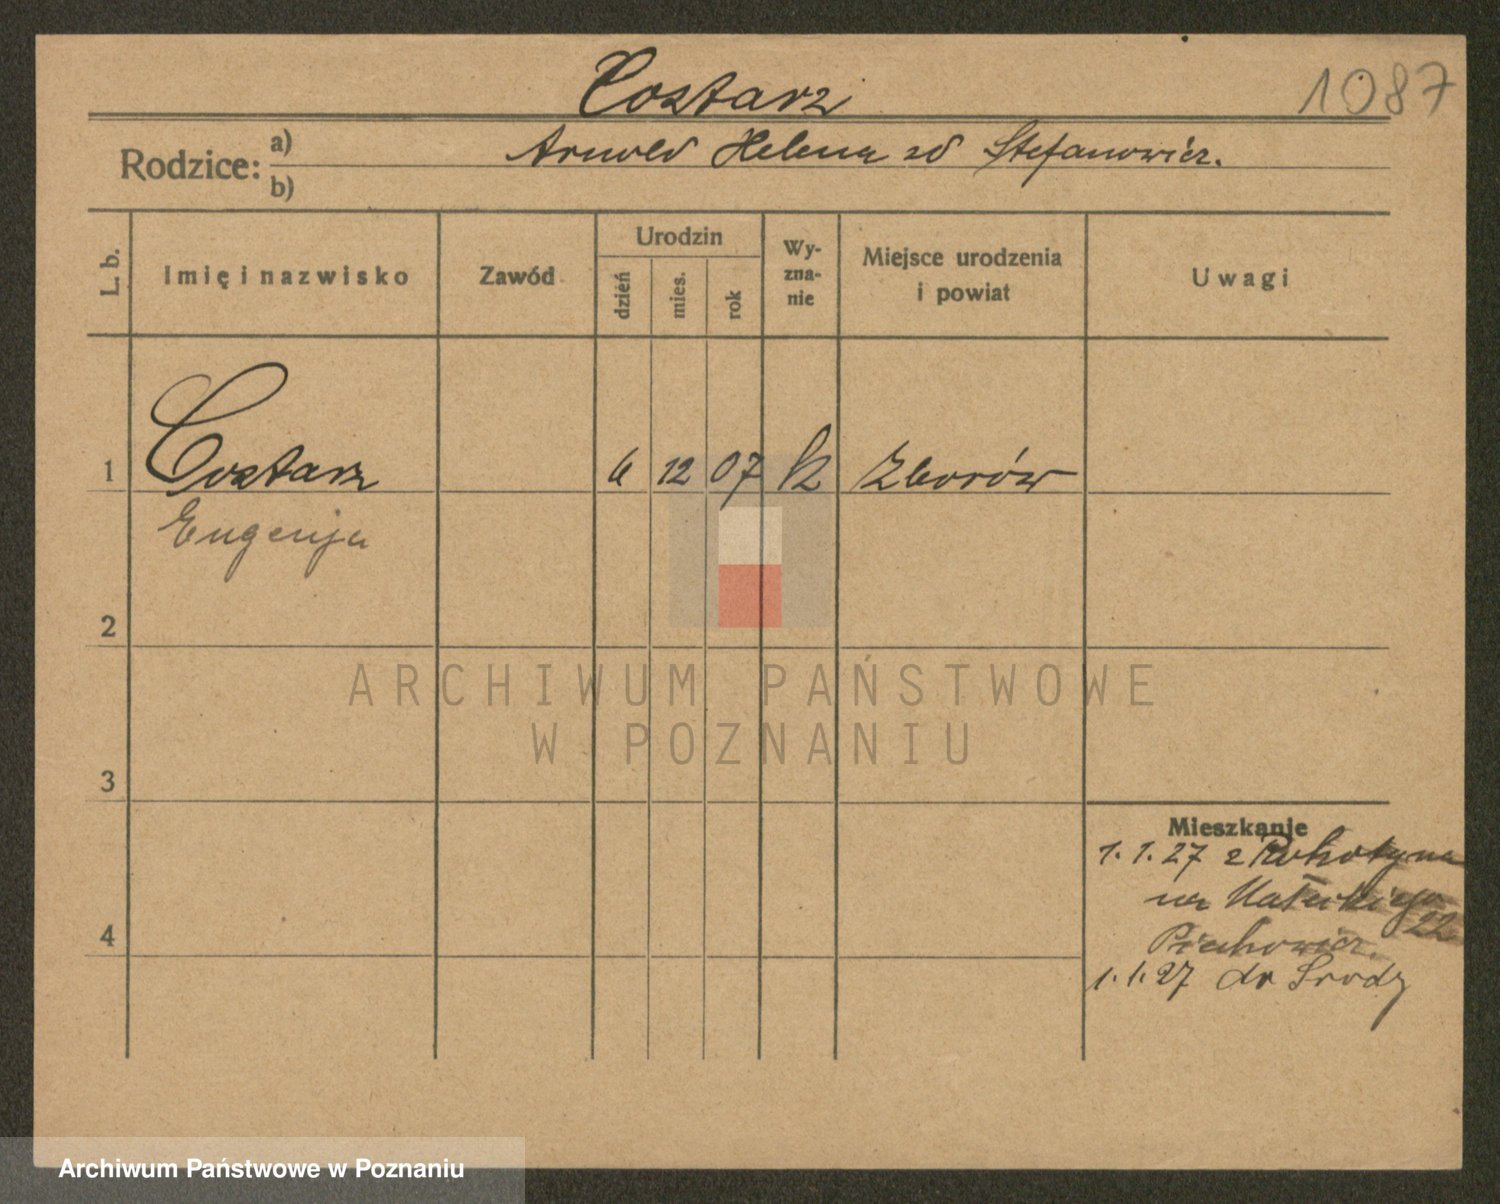 Costarz
1087
Rodzice:
a) Arnold Helena zd Stefanowicz.
b)
L. b.
Imię i nazwisko
Zawód
Urodzin
dzień
mies.
rok
Wy-
zna-
nie
Miejsce urodzenia
i powiat
Uwagi
1 Costarz 6 12 07 k Zborów
Eugenja
2
ARCHIWUM PAŃSTWOWE
W POZNANIU
3
Mieszkanje
1.1.27 z Rohatyna
na 22
4
Piechowicz.
1.1.27 do Środy
Archiwum Państwowe w Poznaniu